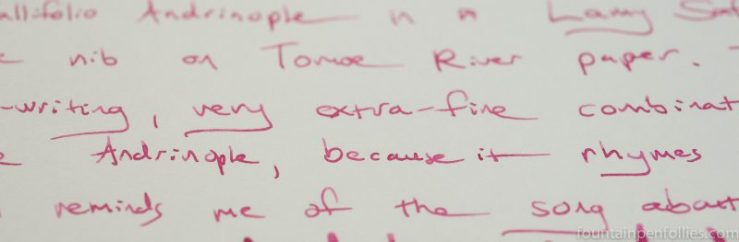 allifolio Andrinople in a Lamy
nib on Tomoe River paper.
-writing, very extra-fine combinat
Andrinople, because it rhymes
reminds me of the song about
fountainpenfollies.com